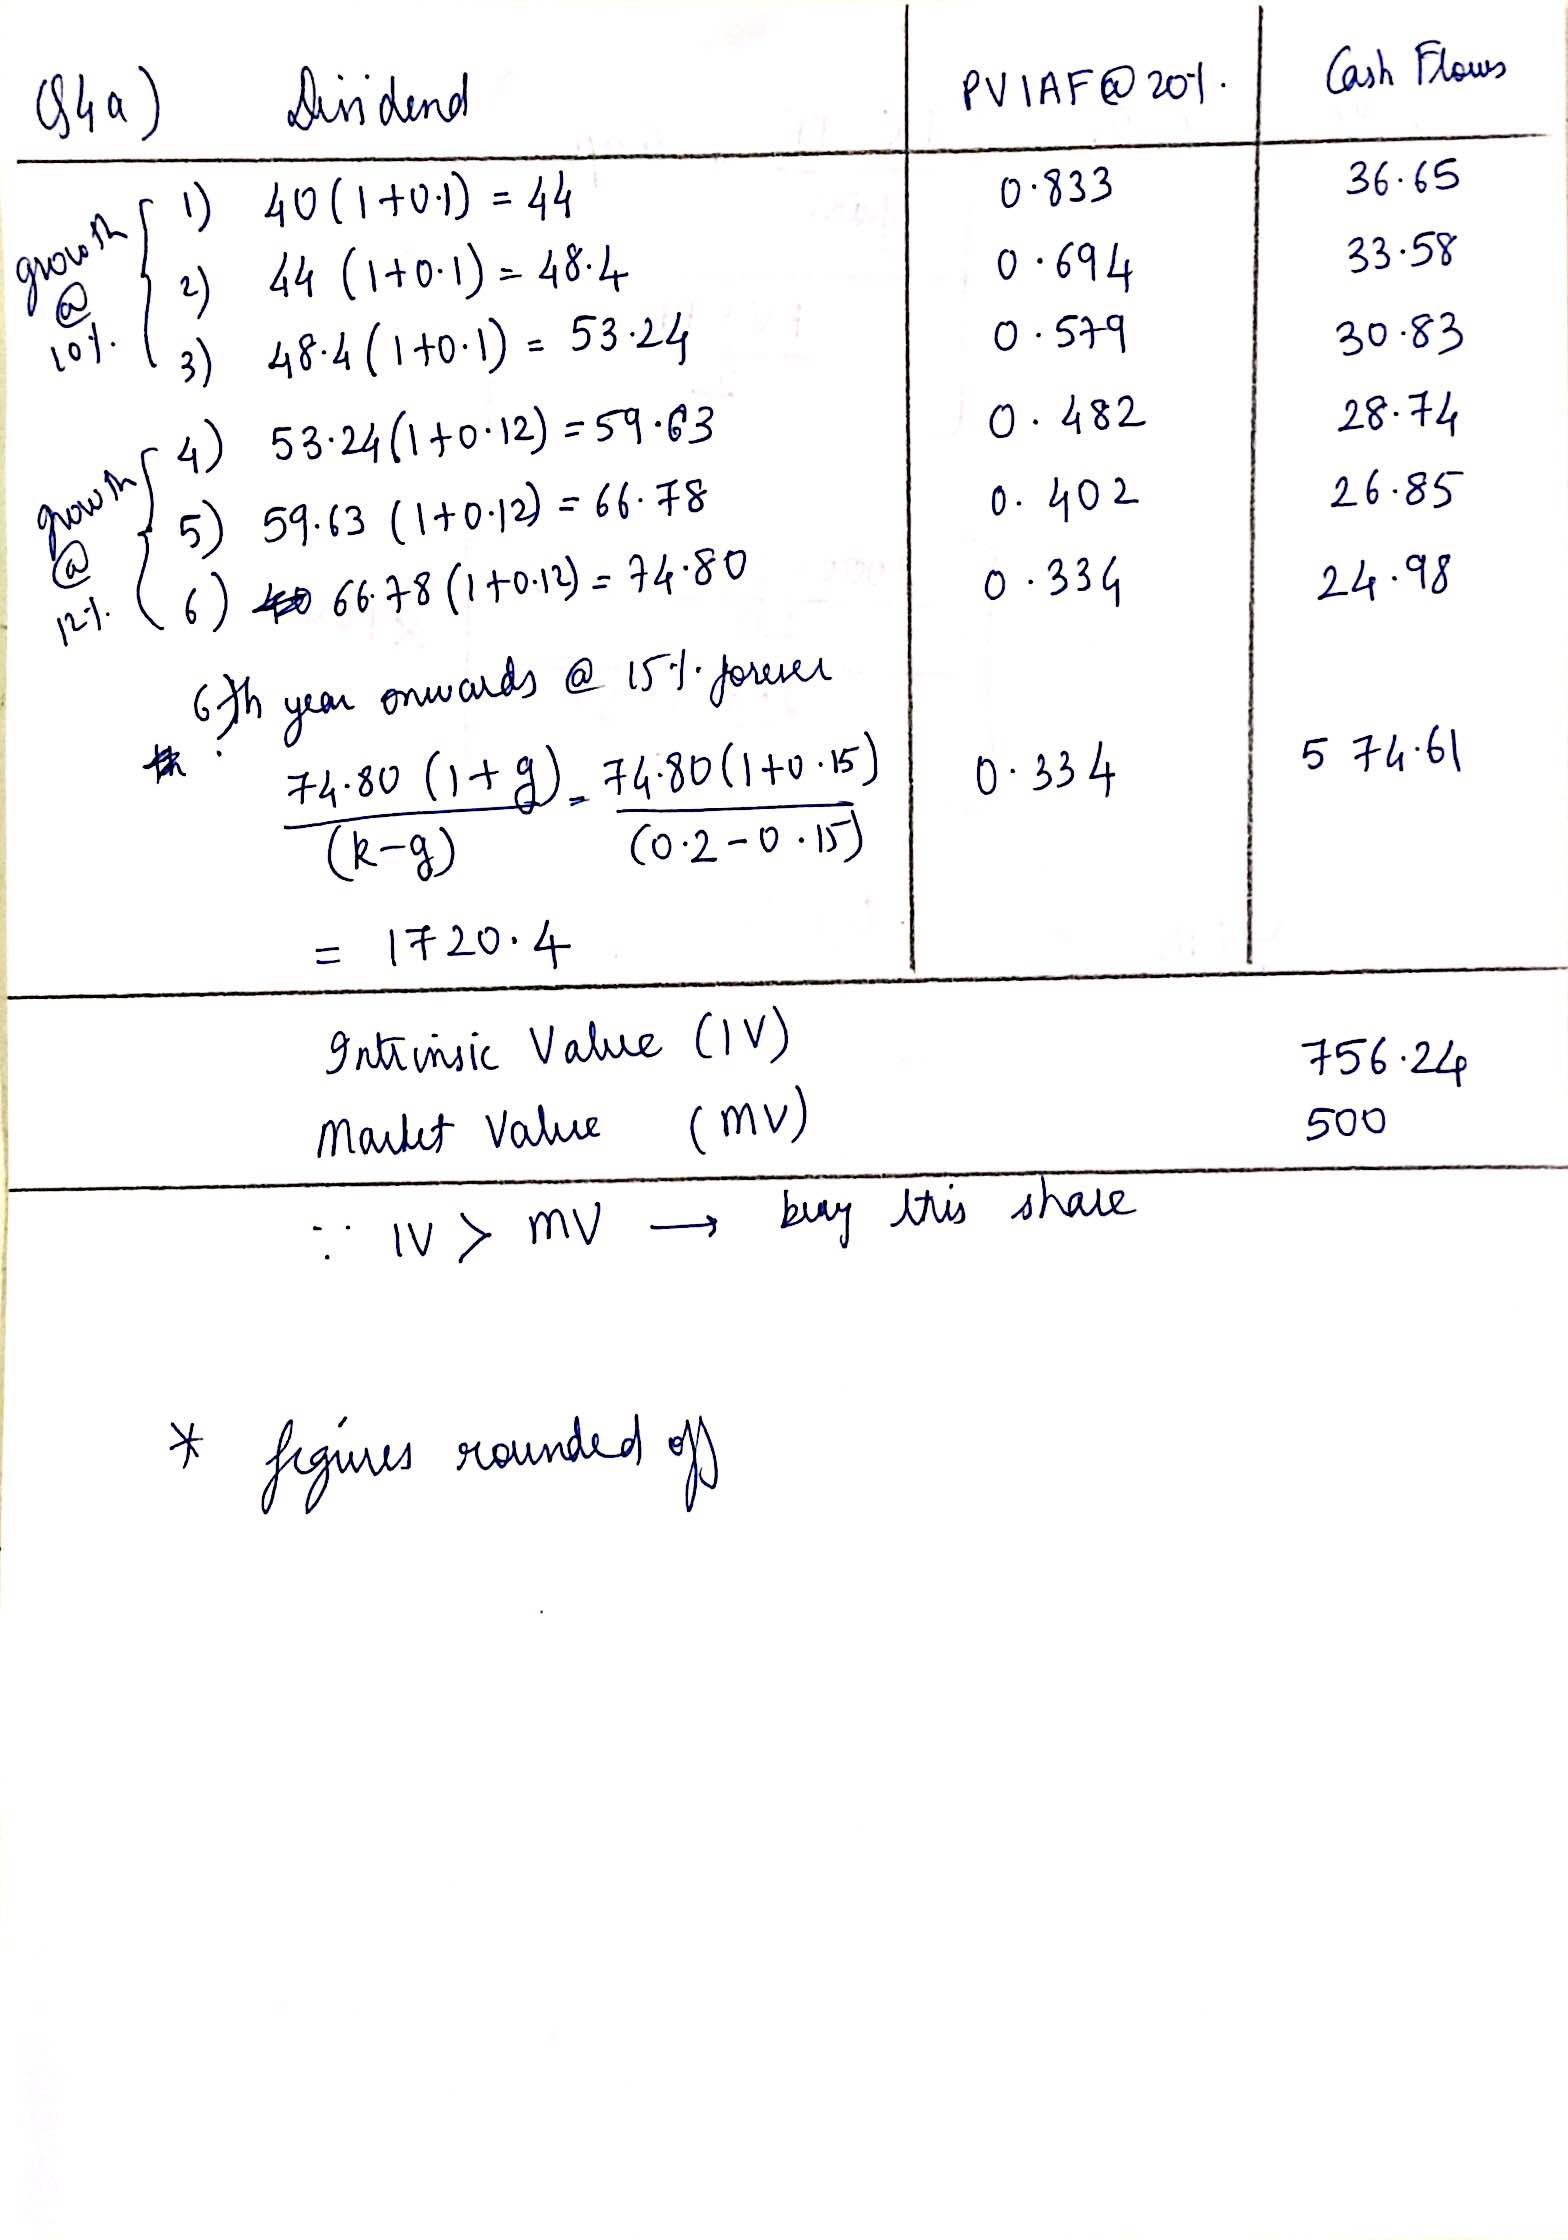 Q4a) Dividend PVIAF@20%. Cash Flows
growth @ 10%.
1) 40(1+0.1) = 44 0.833 36.65
2) 44 (1+0.1) = 48.4 0.694 33.58
3) 48.4(1+0.1) = 53.24 0.579 30.83
growth @ 12%.
4) 53.24(1+0.12) = 59.63 0.482 28.74
5) 59.63 (1+0.12) = 66.78 0.402 26.85
6) 66.78(1+0.12) = 74.80 0.334 24.98
6th year onwards @ 15%. forever
74.80 (1+g) = 74.80(1+0.15) 0.334 574.61
(k-g) (0.2-0.15)
= 1720.4
Intrinsic Value (IV) 756.24
Market Value (MV) 500
∵ IV > MV → buy this share
* figures rounded off